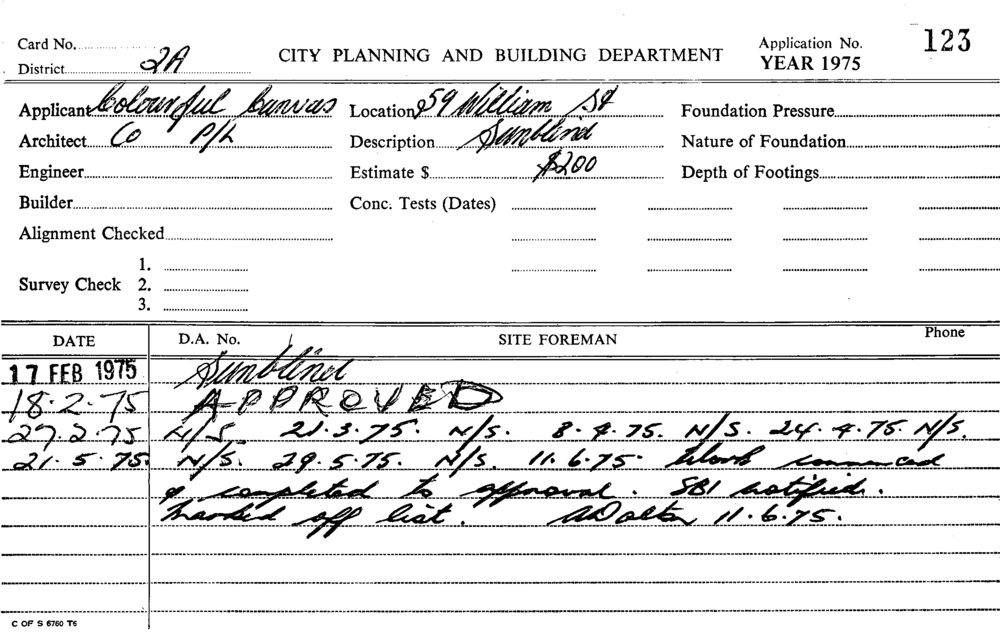 Card No. Application No. 123
District 2A CITY PLANNING AND BUILDING DEPARTMENT YEAR 1975
Applicant Colourful Canvas Location 59 William St Foundation Pressure
Architect Co P/L Description Sunblind Nature of Foundation
Engineer Estimate $ $200 Depth of Footings
Builder Conc. Tests (Dates)
Alignment Checked
1.
Survey Check 2.
3.
DATE D.A. No. SITE FOREMAN Phone
17 FEB 1975 Sunblind
18.2.75 APPROVED
27.2.75 N/S. 21.3.75. N/S. 8.4.75. N/S. 24.4.75. N/S.
21.5.75. N/S. 29.5.75. N/S. 11.6.75. Work commenced
& completed to approval. SBI notified.
Marked off list. ADalton 11.6.75.
C OF S 6760 T6